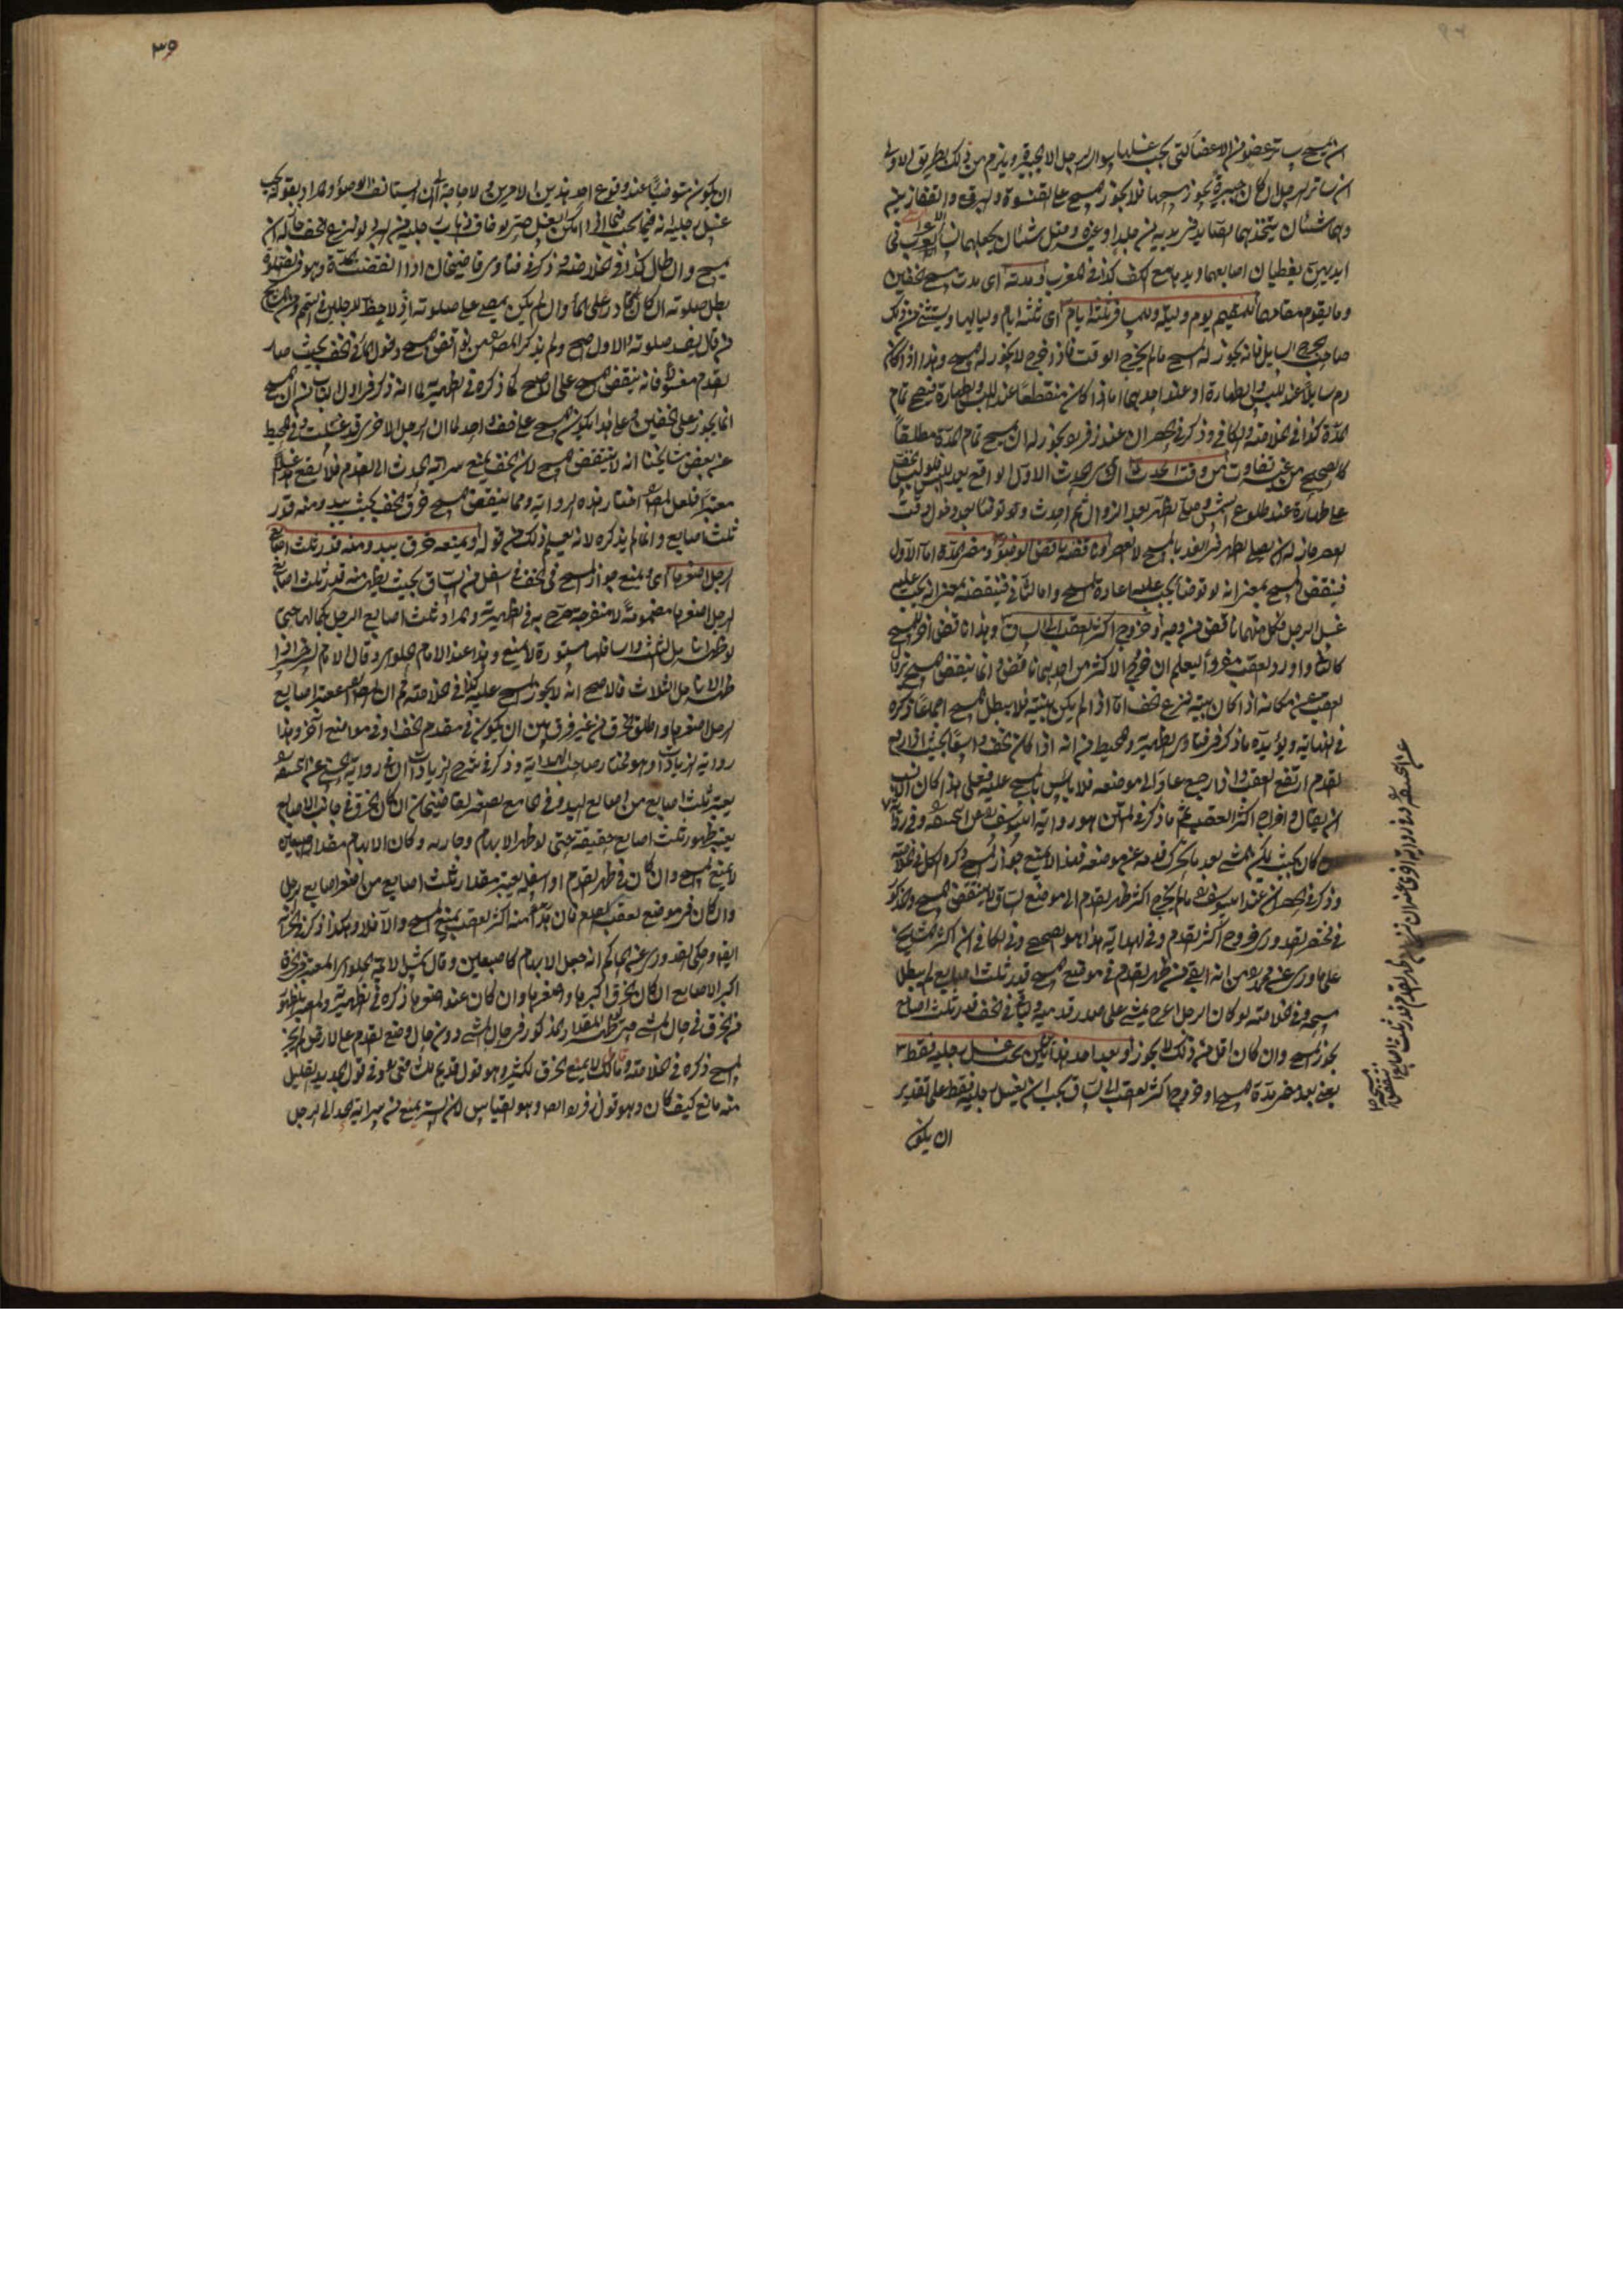 ان المسح ساتر عضو من الاعضاء التي يجب غسلها سوى الرجل الا الجبيرة ويلزم من ذلك بطريق الاولى
ان ساتر الرجل ان كان جبيرة يجوز مسحها فلا يجوز المسح على القلنسوة والبرقع والقفازين
وهما شيئان يتخذهما الصياد في يديه من جلد او غيره وقيل شيئان يجعلهما نساء العرب في
ايديهن يغطيان اصابعهما ويديها مع الكف كذا في المغرب ومدته اي مدة مسح الخفين
وما يقوم مقامهما للمقيم يوم وليلة وللمسافر ثلثة ايام اي ثلثة ايام ولياليها ويستثنى من ذلك
صاحب الجرح السايل فانه يجوز له المسح ما لم يخرج الوقت فاذا خرج لا يجوز له المسح وهذا اذا كان
دم سايلا عند اللبس والطهارة او عند احديهما اما اذا كان منقطعا عند اللبس والطهارة فيمسح تمام
المدة كذا في الخلاصة والكافي وذكر في الحصر ان عند زفر يجوز له ان يمسح تمام المدة مطلقا
كالصحيح من غير تفاوت من وقت الحدث اي الحدث الاول الواقع بعد اللبس فلو لبس الخف
على طهارة عند طلوع الشمس وصلى الظهر بعد الزوال ثم احدث ولو توضأ بعد دخول وقت
العصر جاز له ان يصلي الظهر من الغد بالمسح لا العصر وناقضه ناقض الوضوء ومضي المدة اما الاول
فينقض المسح بمعنى انه لو توضأ يجب عليه اعادة المسح واما الثاني فينقضه بمعنى انه يجب عليه
غسل الرجل فكل منهما ناقض من وجه وخروج اكثر العقب الى الساق وهذا ناقض اخر للمسح
كالنزع واورد العقب مفردا ليعلم ان خروج الاكثر من احديهما ناقض وانما ينتقض المسح بزوال
العقب عن مكانه اذا كان بنية نزع الخف اما اذا لم يكن بنيته فلا يبطل المسح اجماعا ذكره
في النهاية ويؤيده ما ذكر في فتاوى الظهيرية والمحيط من انه اذا كان الخف واسعا بحيث اذا رفع
القدم ارتفع العقب واذا رجع عاد الى موضعه فلا باس بالمسح عليه فعلى هذا كان الانسب
ان يقال واخراج اكثر العقب ثم ما ذكر في المتن هو رواية ابي يوسف عن ابي حنيفة وفي رواية
كان بحيث يمكن المشي بعد ما تحرك قدمه عن موضعه فهذا لا يمنع جواز المسح ذكره الكل في الخلاصة
وذكر في الحصر ان عند ابي يوسف ما لم يخرج اكثر ظهر القدم الى موضع الساق لا ينتقض المسح والمذكور
في مختصر القدوري خروج اكثر القدم وفي الهداية هذا هو الصحيح وفي الكافي ان اكثر المشايخ
على ما روي عن محمد من انه ان بقي من ظهر القدم في موضع المسح قدر ثلث اصابع لم يبطل
مسحه وفي الخلاصة لو كان الرجل اعرج يمشي على صدر قدميه وبقي في الخف قدر ثلث اصابع
يجوز المسح وان كان اقل من ذلك لا يجوز وبعد احد هذين يجب غسل رجليه فقط
يعني بعد مضي مدة المسح او خروج اكثر العقب الى الساق يجب ان يغسل رجليه فقط على تقدير
ان يكون
٣٥
ان يكون متوضئا عند وقوع احد هذين الامرين ولا حاجة الى ان يستأنف الوضوء والمراد بقوله يجب
غسل رجليه انه فيما يجب فيما اذا امكن الغسل حتى لو خاف ذهاب رجليه من البرد لو نزع الخف جاز له ان
يمسح وان طال كذا في الخلاصة وذكر في فتاوى قاضيخان اذا انقضت المدة وهو في الصلوة
بطل صلوته ان كان قادرا على الماء وان لم يكن يمضي على صلوته اذ لا حظ للرجلين في التيمم ومن المشايخ
من قال يفسد صلوته والاول اصح ولم يذكر المص من نواقض المسح دخول الماء في الخف بحيث صار
القدم مغسولا فانه ينقض المسح على الاصح كما ذكره في الظهيرية لما انه ذكر في اول الباب ان المسح
انما يجوز على الخفين وعلى هذا لا يكون المسح على خف واحد لما ان الرجل الاخرى قد غسلت وفي المحيط
عن بعض مشايخنا انه لا ينتقض المسح لان الخف يمنع سراية الحدث الى القدم فلا يقع الغسل
معتبرا فلعل المص اختار هذه الرواية ومما ينقض المسح خرق الخف بحيث يبدو منه قدر
ثلث اصابع وانما لم يذكره لانه يعلم ذلك من قوله ويمنعه خرق يبدو منه قدر ثلث اصابع
الرجل اصغرها اي ويمنع جواز المسح خرق الخف في اسفل من الساق بحيث يظهر منه قدر ثلث اصابع
الرجل اصغرها مضمومة لا منفرجة صرح به في الظهيرية والمراد ثلث اصابع الرجل بكمالها حتى
لو ظهر انامل الثلث واسافلها مستورة لا يمنع وهذا عند الامام الحلواني وقال الامام السرخسي اذا
ظهر الانامل الثلاث فالاصح انه لا يجوز المسح عليه كذا في الخلاصة ثم ان المص اعتبر اصابع
الرجل اصغرها واطلق الخرق من غير فرق بين ان يكون في مقدم الخف او في مواضع اخر وهذا
رواية الزيادات وهو مختار صاحب الهداية وذكر في شرح الزيادات ان في رواية الحسن عن ابي حنيفة
يعتبر ثلث اصابع من اصابع اليد وفي الجامع الصغير لقاضيخان ان كان الخرق في جانب الاصابع
يعتبر ظهور ثلث اصابع حقيقة حتى لو ظهر الابهام وجارته وكان الابهام مقدار اصبعين
لا يمنع المسح وان كان في ظهر القدم او اسفله يعتبر مقدار ثلث اصابع من اصغر اصابع الرجل
وان كان في موضع العقب فان بدا منه اكثر العقب يمنع المسح والا فلا وهكذا ذكر في
ايضا وحكى القدوري عن الحاكم انه جعل الابهام كاصبعين وقال شمس الائمة الحلواني المعتبر في الخرق
اكبر الاصابع ان كان الخرق اكبرها واصغرها وان كان عند اصغرها ذكره في الظهيرية والمعتبر ظهور
من الخرق في حال المشي حتى ظهر المقدار المذكور في حال المشي دون حال وضع القدم على الارض لم يجز
المسح ذكره في الخلاصة وقال مالك لا يمنع الخرق الكثير وهو قول قديم للشافعي وفي قول الجديد القليل
منه مانع كيف كان وهو قول زفر وهو القياس لان الستر يمنع من سراية الحدث الى الرجل
عن ابي حنيفة وفي رواية اخرى عنه ان خرج من ظهر القدم قدر ثلث اصابع انتقض مسحه